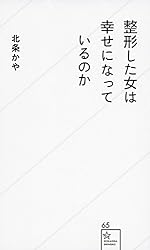 整形した女は
幸せになって
いるのか
北条かや
65